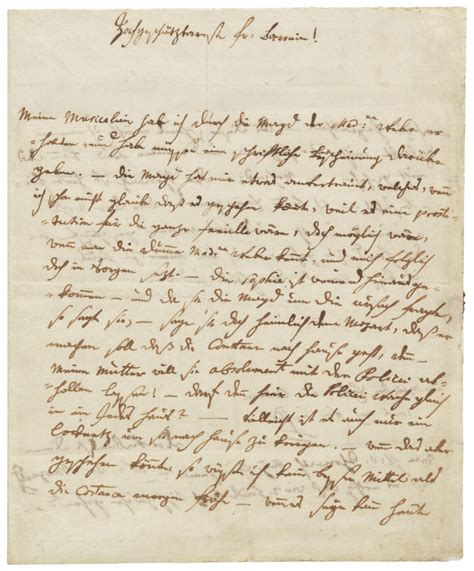 Hochgeschätzteste fr: Baronin!
Meine Musicalien hab ich durch die Magd der Mad:me Weber er-
halten, und hab müssen eine schriftliche bescheinung darüber
geben. – die Magd hat mir etwas anvertrauet, welches, wenn
ich schon nicht glaube daß es geschehen könnte, weil es eine prosti-
tution für die ganze famille wäre, doch möglich wäre,
wenn man die dumme Mad:me Weber kennt, und mich folglich
doch in Sorgen setzt. – die Sophie ist weinend hinausge-
kommen – und da sie die Magd um die ursach fragte,
so sagte sie; – sage sie doch heimlich dem Mozart, daß er
machen soll daß die Constanz nach hause geht, denn –
Meine Mutter will sie absolument mit der Polizei ab-
hollen lassen! – darf denn hier die Polizei wache gleich
in ein Jedes haus? – vielleicht ist es auch nur ein
locknetz um sie nach hause zu bringen. – wenn das aber
geschehen könnte, so wüste ich kein besseres Mittel als
die Constance morgen frühe – wenns seyn kann heute